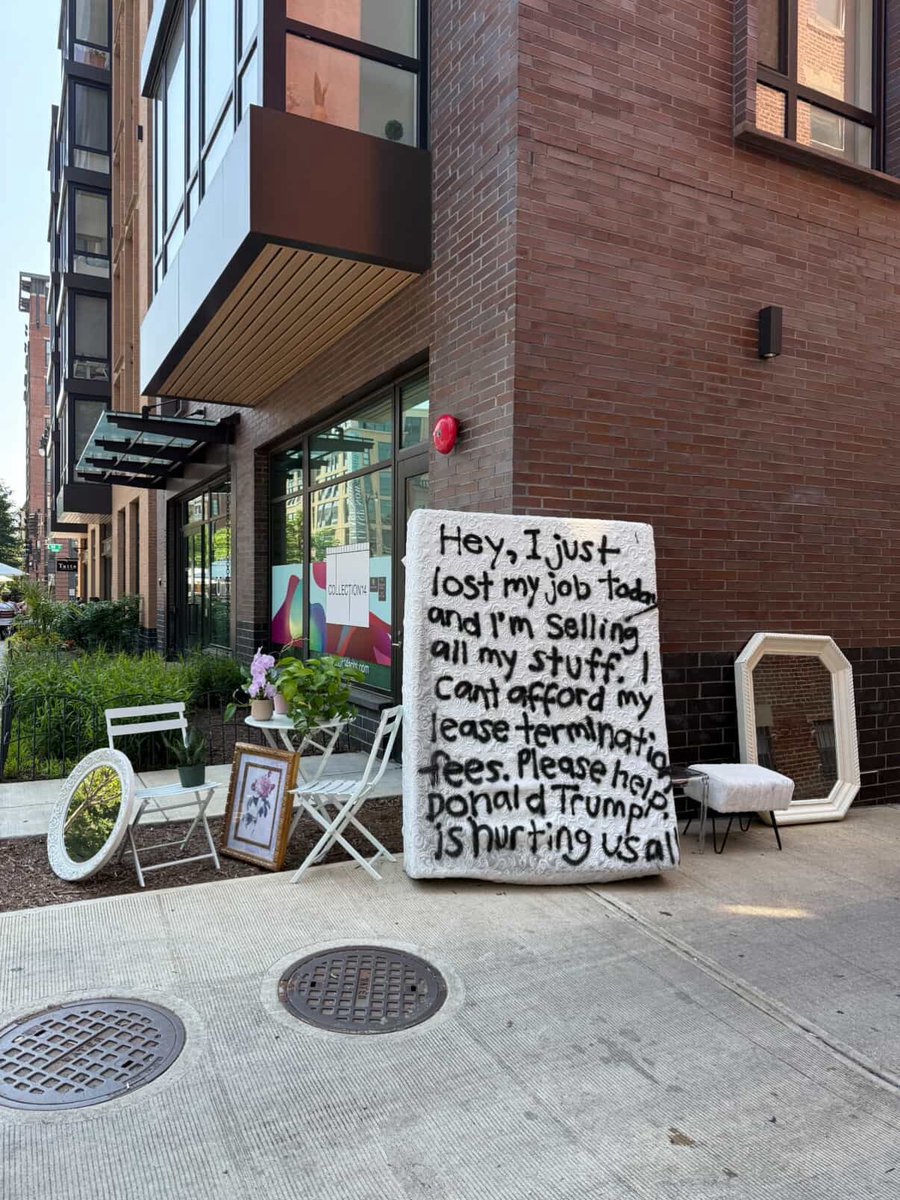 Hey, I just
lost my job today
and I'm selling
all my stuff. I
cant afford my
lease termination
fees. Please help.
Donald Trump
is hurting us all
COLLECTION14
Tatte